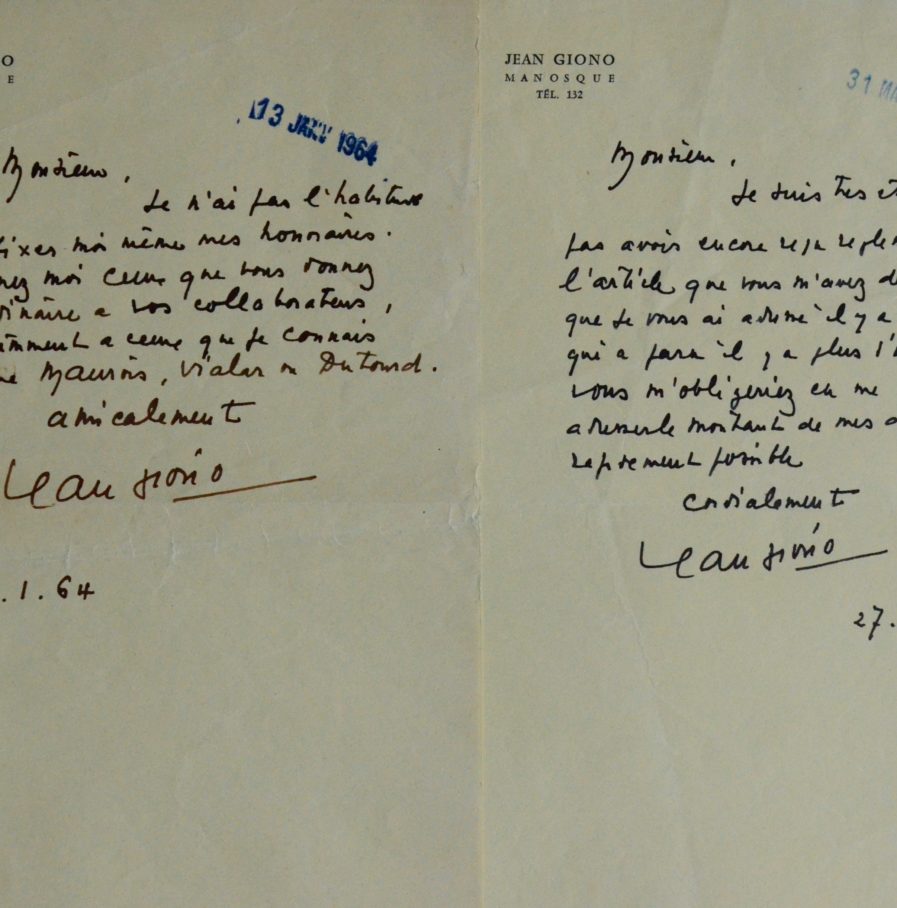 O
E
13 JANV 1964
Monsieur,
Je n'ai pas l'habitude
fixer moi même mes honoraires.
nez moi ceux que vous donnez
dinaire a vos collaborateurs,
amment a ceux que je connais
me Maurois, Vialar ou Dutourd.
amicalement
Jean Giono
.1.64
JEAN GIONO
MANOSQUE
TÉL. 132
31 MA
Monsieur,
Je suis très ét
pas avoir encore reçu reglem
l'article que vous m'avez d
que je vous ai adressé il y a
qui a paru il y a plus
vous m'obligeriez en me
adresser le montant de mes
rapidement possible
cordialement
Jean Giono
27.